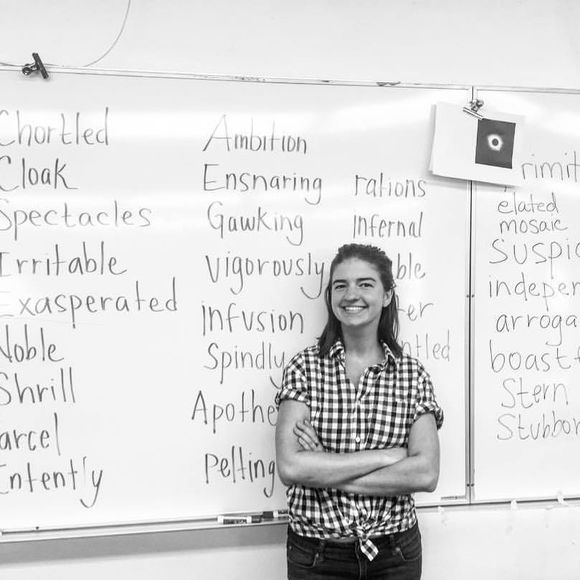 Chortled
Cloak
Spectacles
Irritable
Exasperated
Noble
Shrill
arcel
Intently
Ambition
Ensnaring
Gawking
Vigorously
Infusion
Spindly
Apothe
Pelting
rations
Infernal
ble
er
ntled
rimit
elated
mosaic
Suspic
indepen
arroga
boastf
Stern
Stubborn